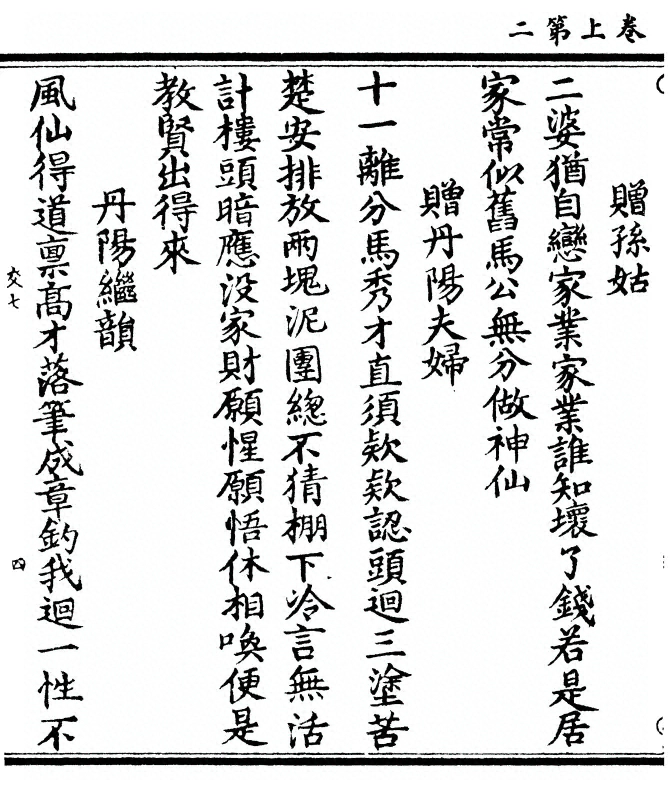 卷上第二
贈孫姑
二婆猶自戀家業家業誰知壞了錢若是居
家常似舊馬公無分做神仙
贈丹陽夫婦
十一離分馬秀才直須欵欵認頭迴三塗苦
楚安排放两塊泥團總不猜棚下冷言無活
計樓頭暗應没家財願惺願悟休相喚便是
教賢出得來
丹陽繼韻
交七
四
風仙得道禀髙才落筆成章釣我迴一性不